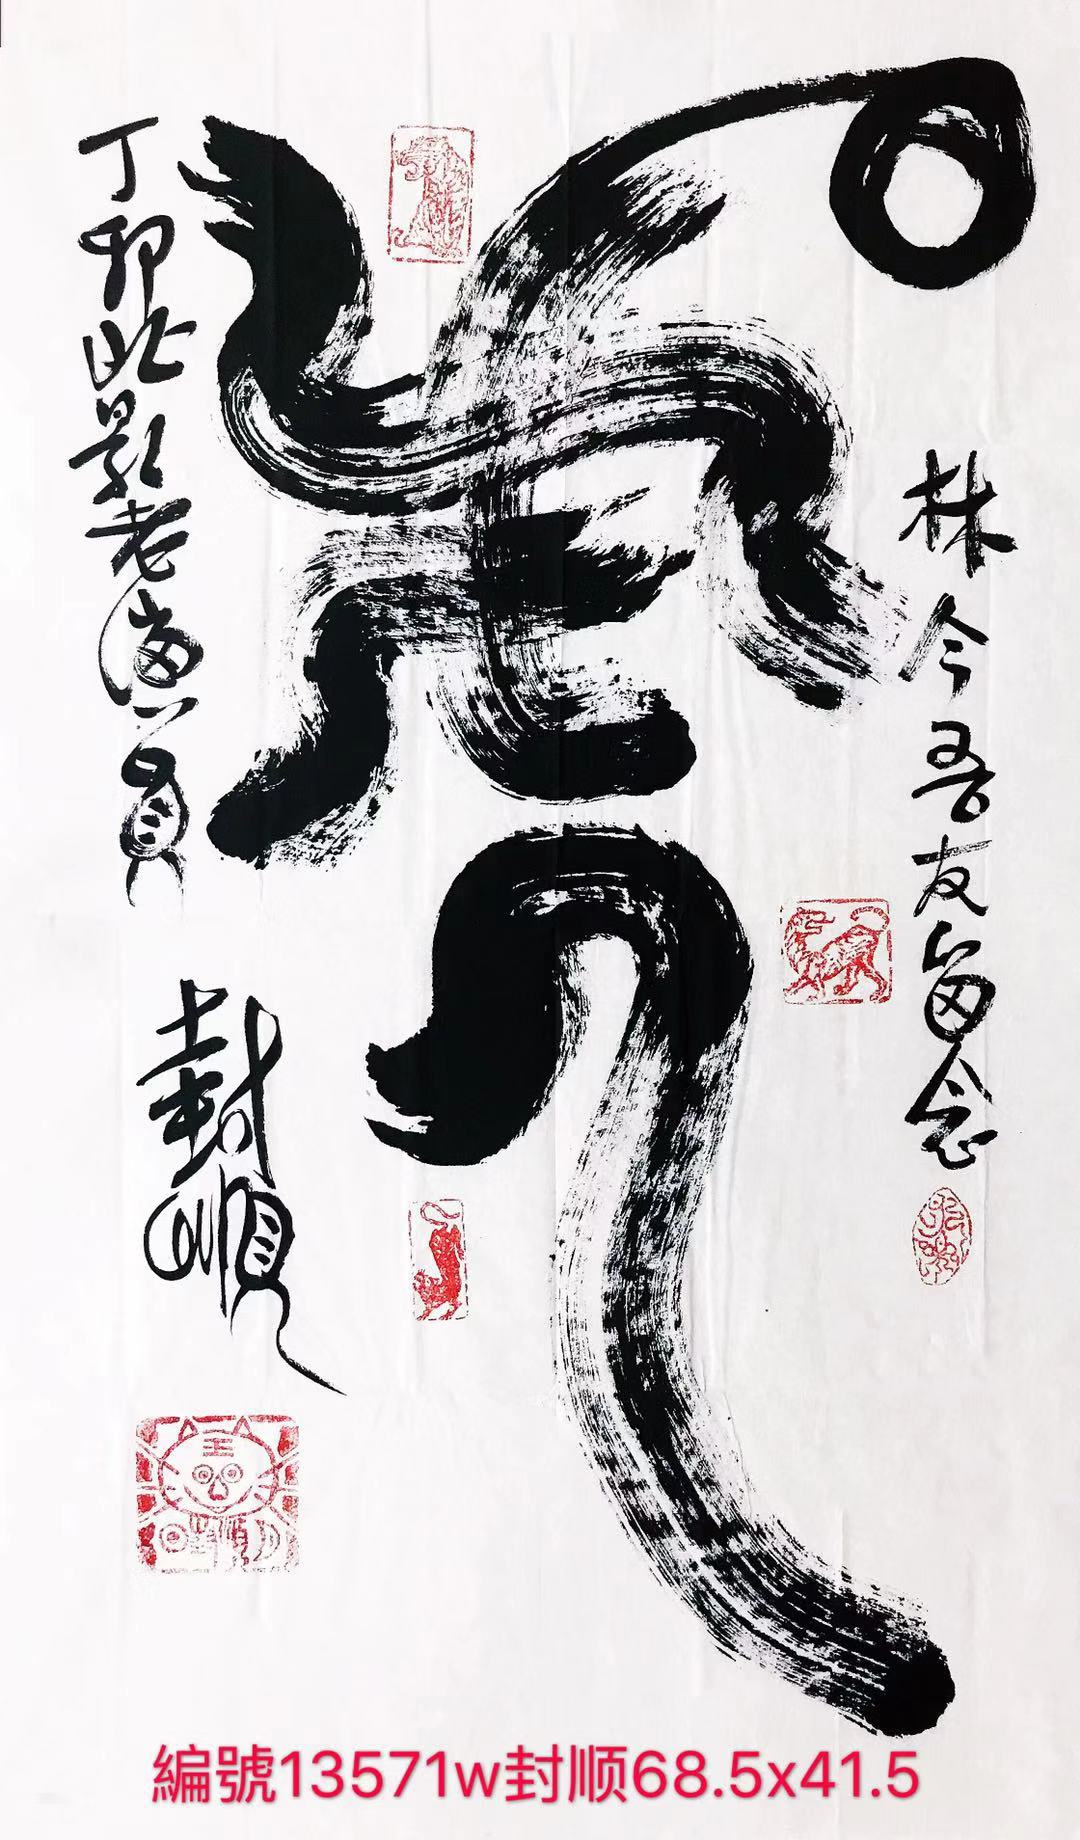 林今吾友留念
虎
丁卯北影老演員
封順
編號13571w封顺68.5x41.5